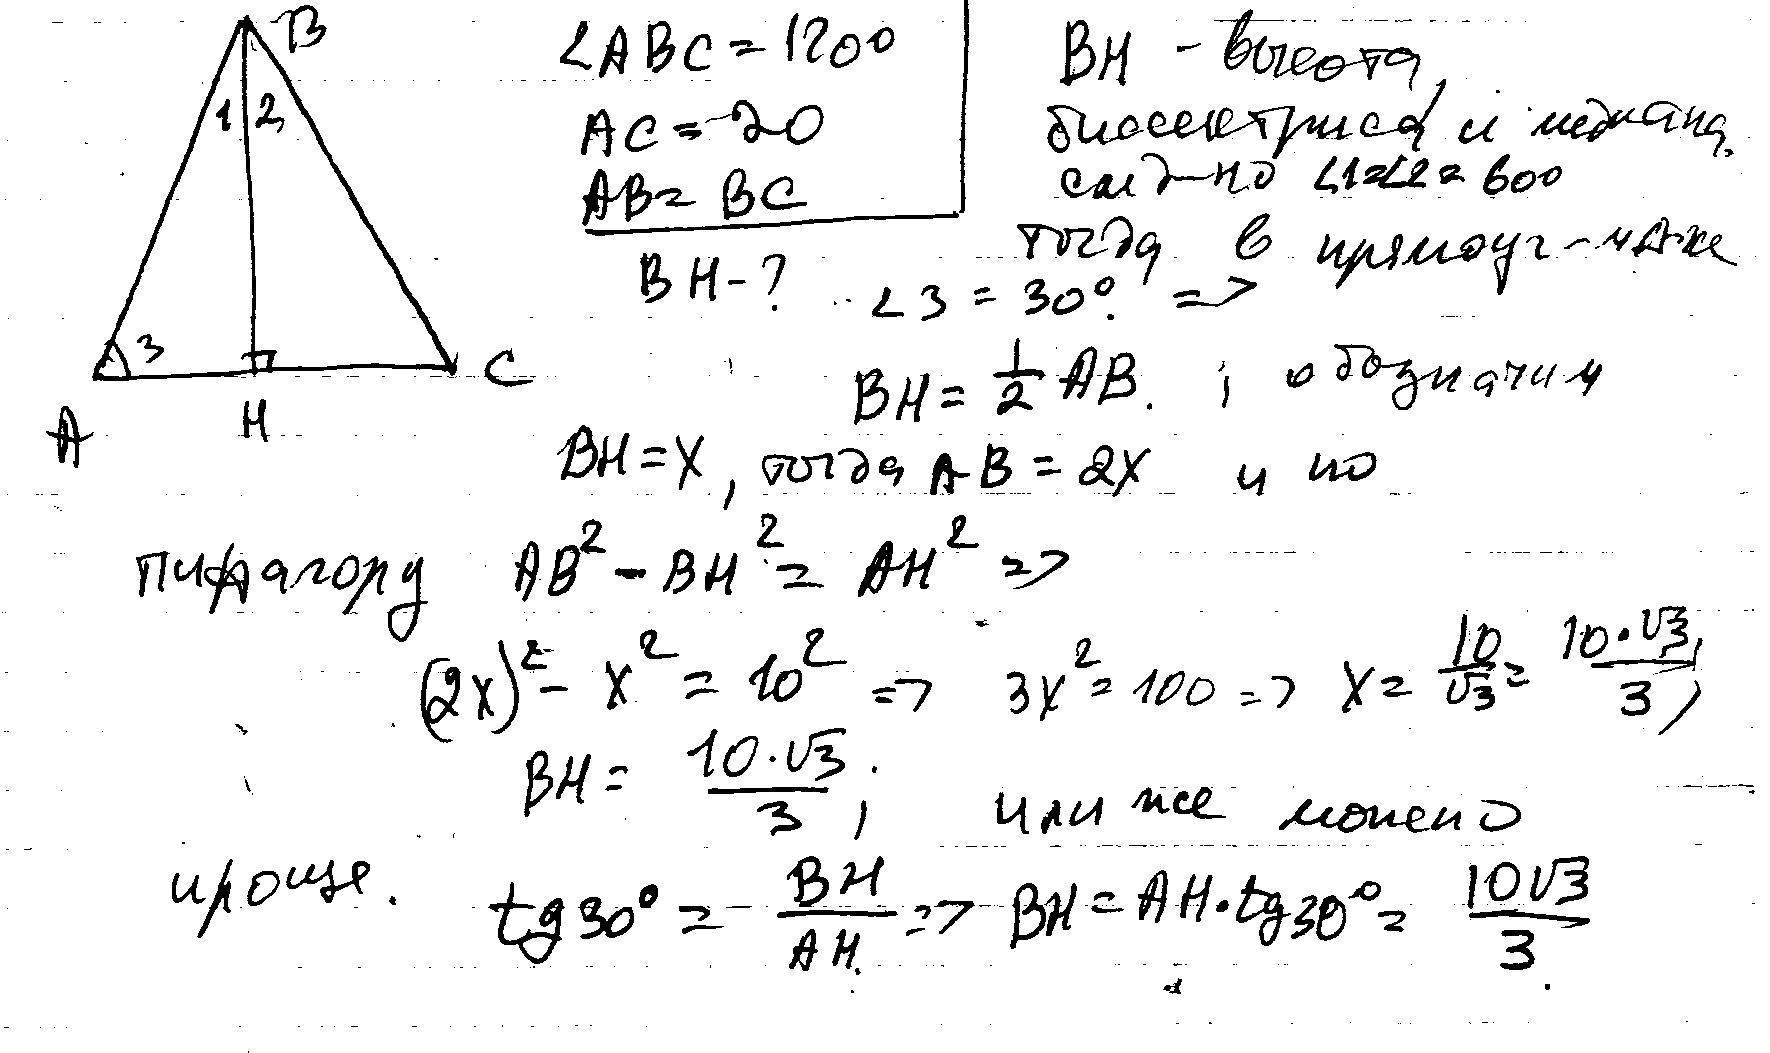 B
1 2
3
A
H
C
∠ABC = 120°
AC = 20
AB = BC
BH - ?
BH - высота,
биссектриса и медиана,
след-но ∠1=∠2 = 60°
тогда в прямоуг-м Δ-ке
∠3 = 30° =>
BH = 1/2 AB. ; обозначим
BH = x, тогда AB = 2x и по
пифагору AB² - BH² = AH² =>
(2x)² - x² = 10² => 3x² = 100 => x = 10/√3 = 10·√3/3;
BH = 10·√3/3; или же можно
проще. tg30° = BH/AH. => BH = AH·tg30° = 10√3/3.